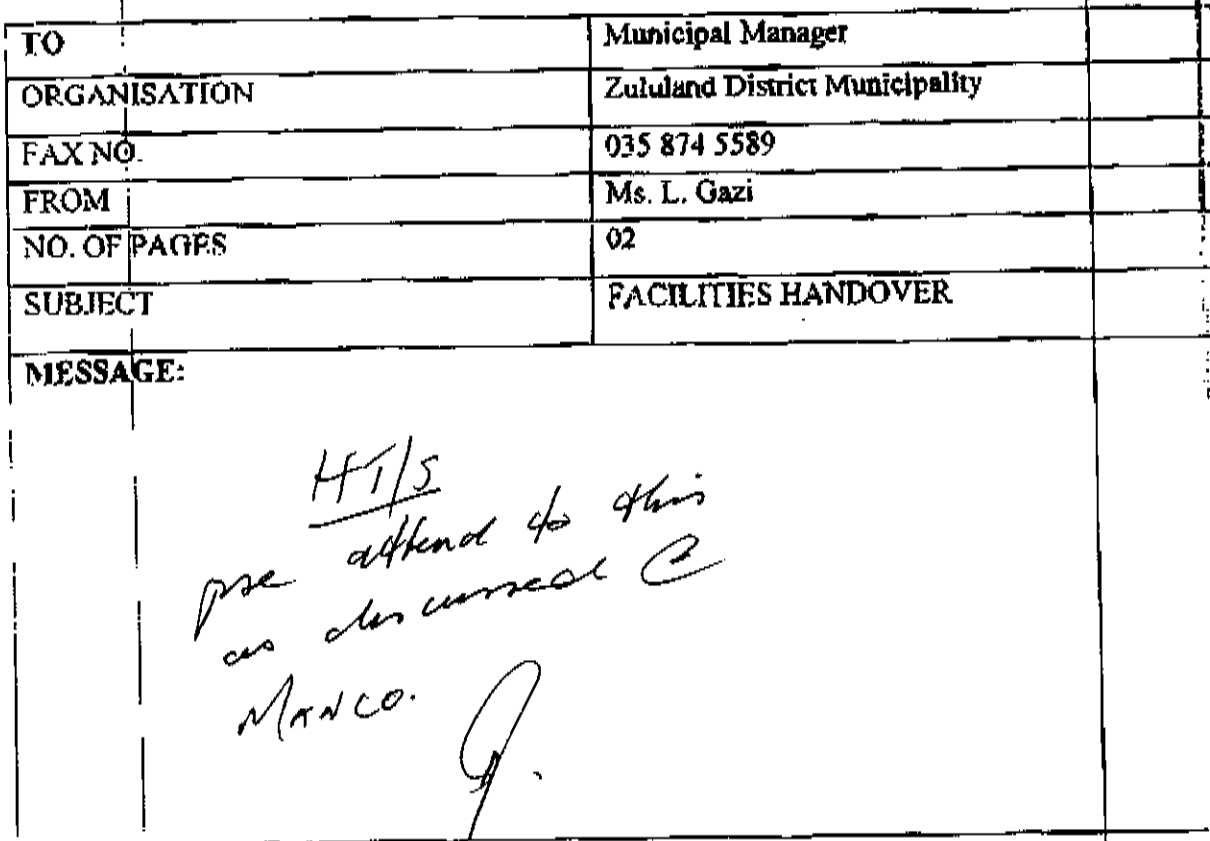 TO Municipal Manager
ORGANISATION Zululand District Municipality
FAX NO. 035 874 5589
FROM Ms. L. Gazi
NO. OF PAGES 02
SUBJECT FACILITIES HANDOVER
MESSAGE:
HT/S
pse attend to this
as discussed @
MANCO.